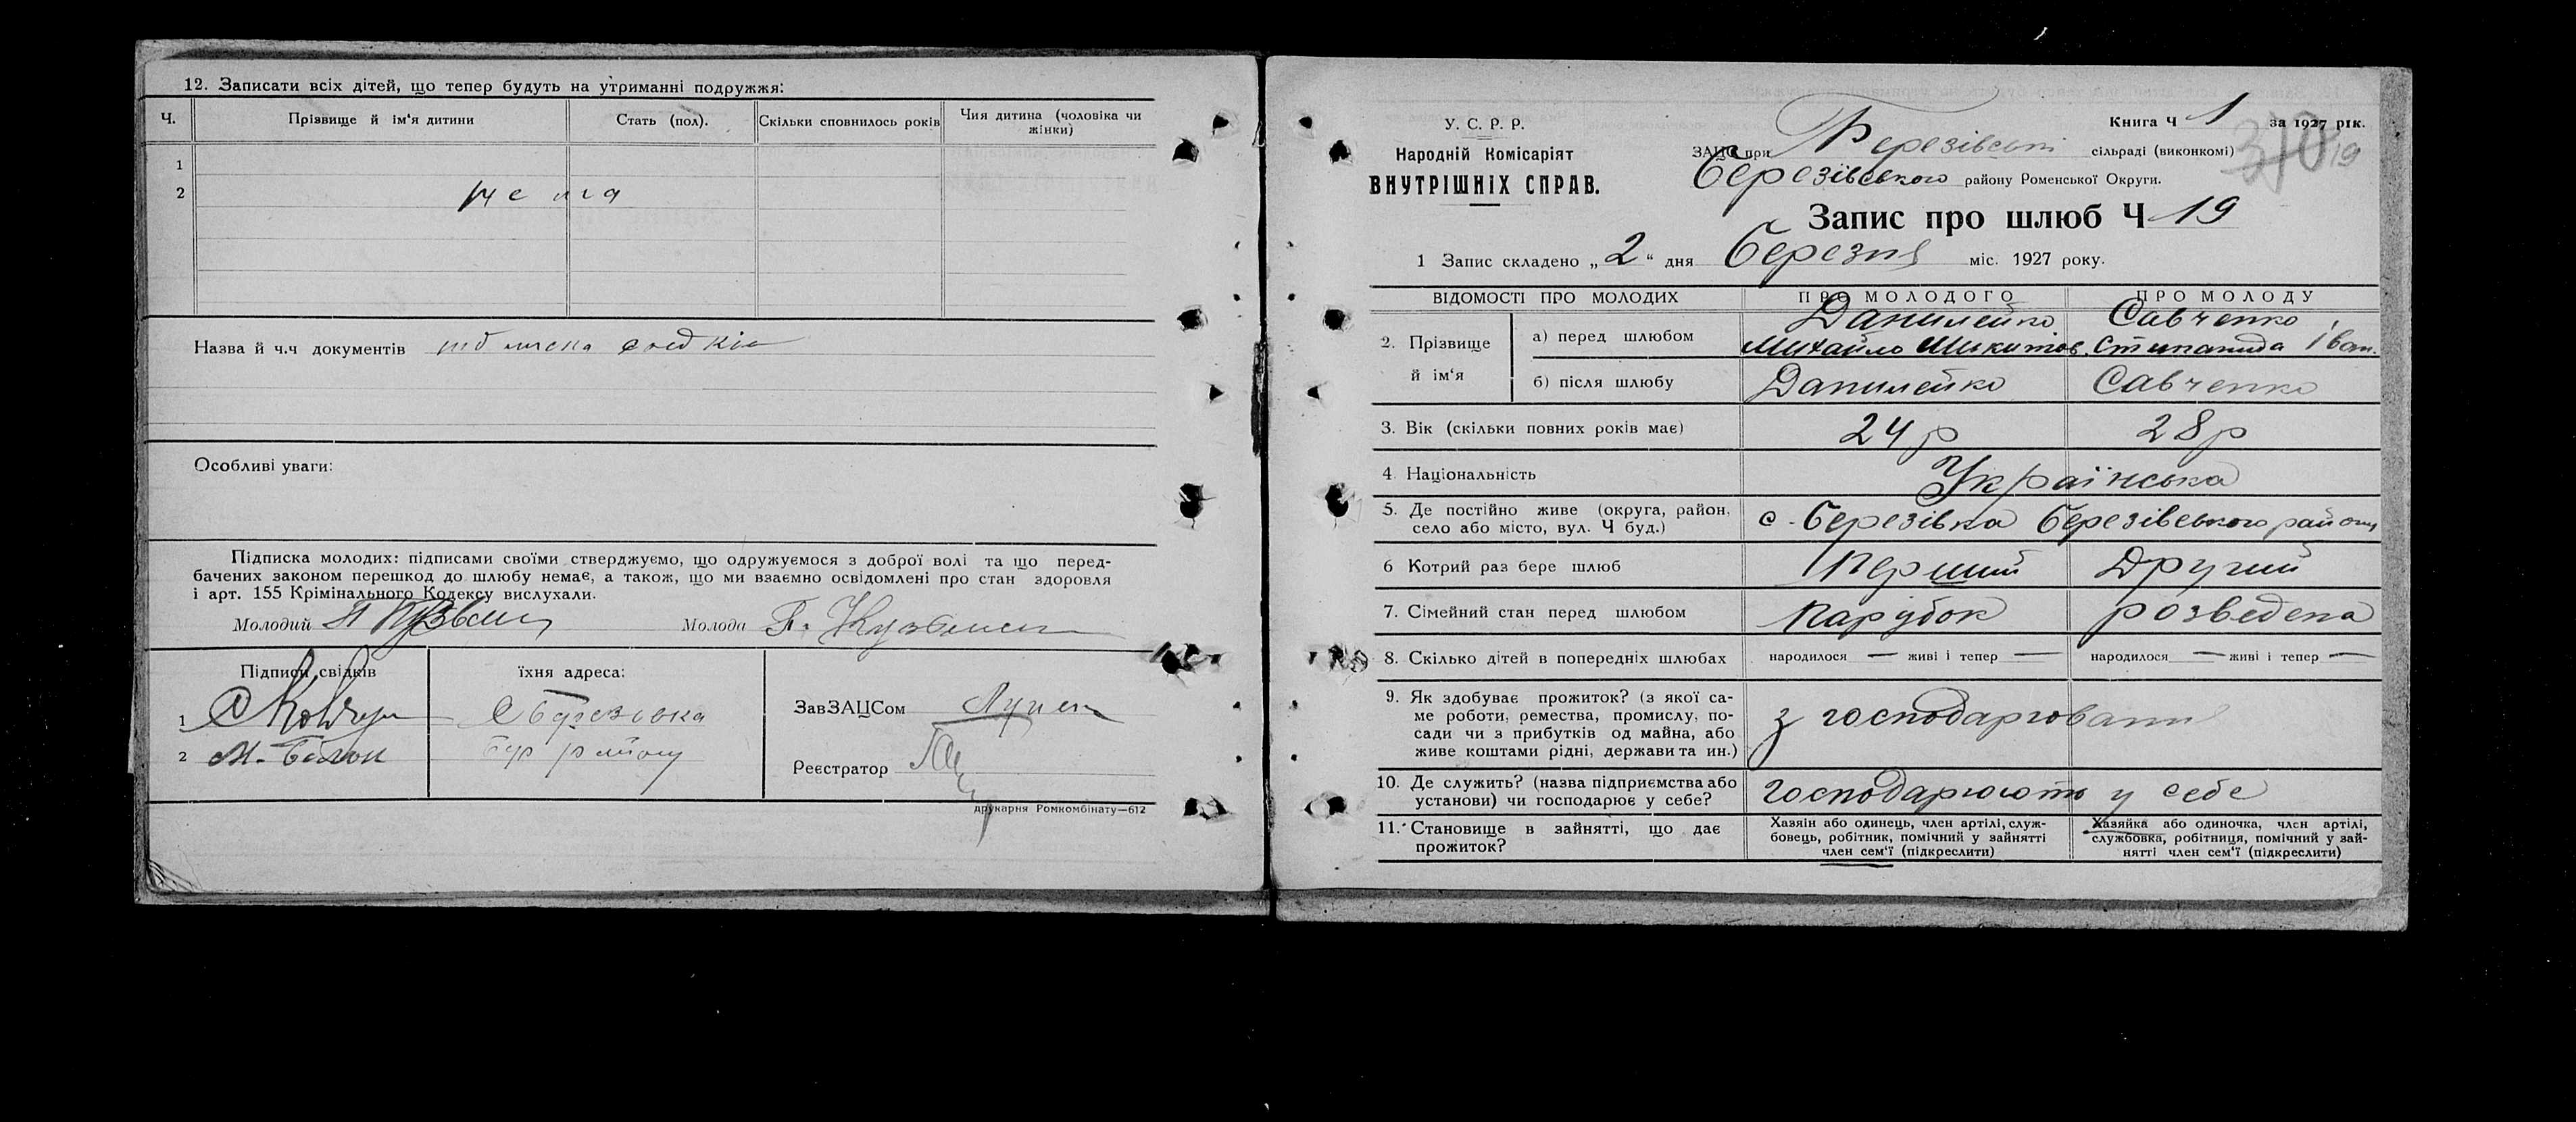 12. Записати всіх дітей, що тепер будуть на утриманні подружжя:
Ч. Прізвище й ім'я дитини Стать (пол). Скільки сповнилось років Чия дитина (чоловіка чи жінки)
1
2 нема
Назва й ч.ч документів
Особливі уваги:
Підписка молодих: підписами своїми стверджуємо, що одружуємося з доброї волі та що перед-
бачених законом перешкод до шлюбу немає, а також, що ми взаємно освідомлені про стан здоровля
і арт. 155 Крімінального Кодексу вислухали.
Молодий Молода
Підписи свідків їхня адреса:
1 с Березовка
2 М. Білок Бер району
ЗавЗАЦСом
Реєстратор
друкарня Ромкомбінату—612
У. С. Р. Р.
Народній Комісаріят
ВНУТРІШНІХ СПРАВ.
Книга Ч 1 за 1927 рік.
ЗАЦС при Березівській сільраді (виконкомі)
370 19
Березівського району Роменської Округи.
Запис про шлюб Ч 19
1 Запис складено „2“ дня Березня міс. 1927 року.
ВІДОМОСТІ ПРО МОЛОДИХ ПРО МОЛОДОГО ПРО МОЛОДУ
2. Прізвище й ім'я
а) перед шлюбом Данилейко Михайло Микитов. Савченко Стипанида Іван.
б) після шлюбу Данилейко Савченко
3. Вік (скільки повних років має) 24 р 28 р
4 Національність Українська
5. Де постійно живе (округа, район,
село або місто, вул. Ч буд.) с. Березівка Березівського району
6 Котрий раз бере шлюб Перший Другий
7. Сімейний стан перед шлюбом Парубок розведена
8. Скілько дітей в попередніх шлюбах народилося — живі і тепер — народилося — живі і тепер —
9. Як здобуває прожиток? (з якої са-
ме роботи, ремества, промислу, по-
сади чи з прибутків од майна, або
живе коштами рідні, держави та ин.) з господарговання
10. Де служить? (назва підприємства або
установи) чи господарює у себе? господарюють у себе
11. Становище в зайнятті, що дає
прожиток?
Хазяін або одинець, член артілі, служ-
бовець, робітник, помічний у зайнятті
член сем'ї (підкреслити)
Хазяйка або одиночка, член артілі,
службовка, робітниця, помічний у зай-
нятті член сем'ї (підкреслити)